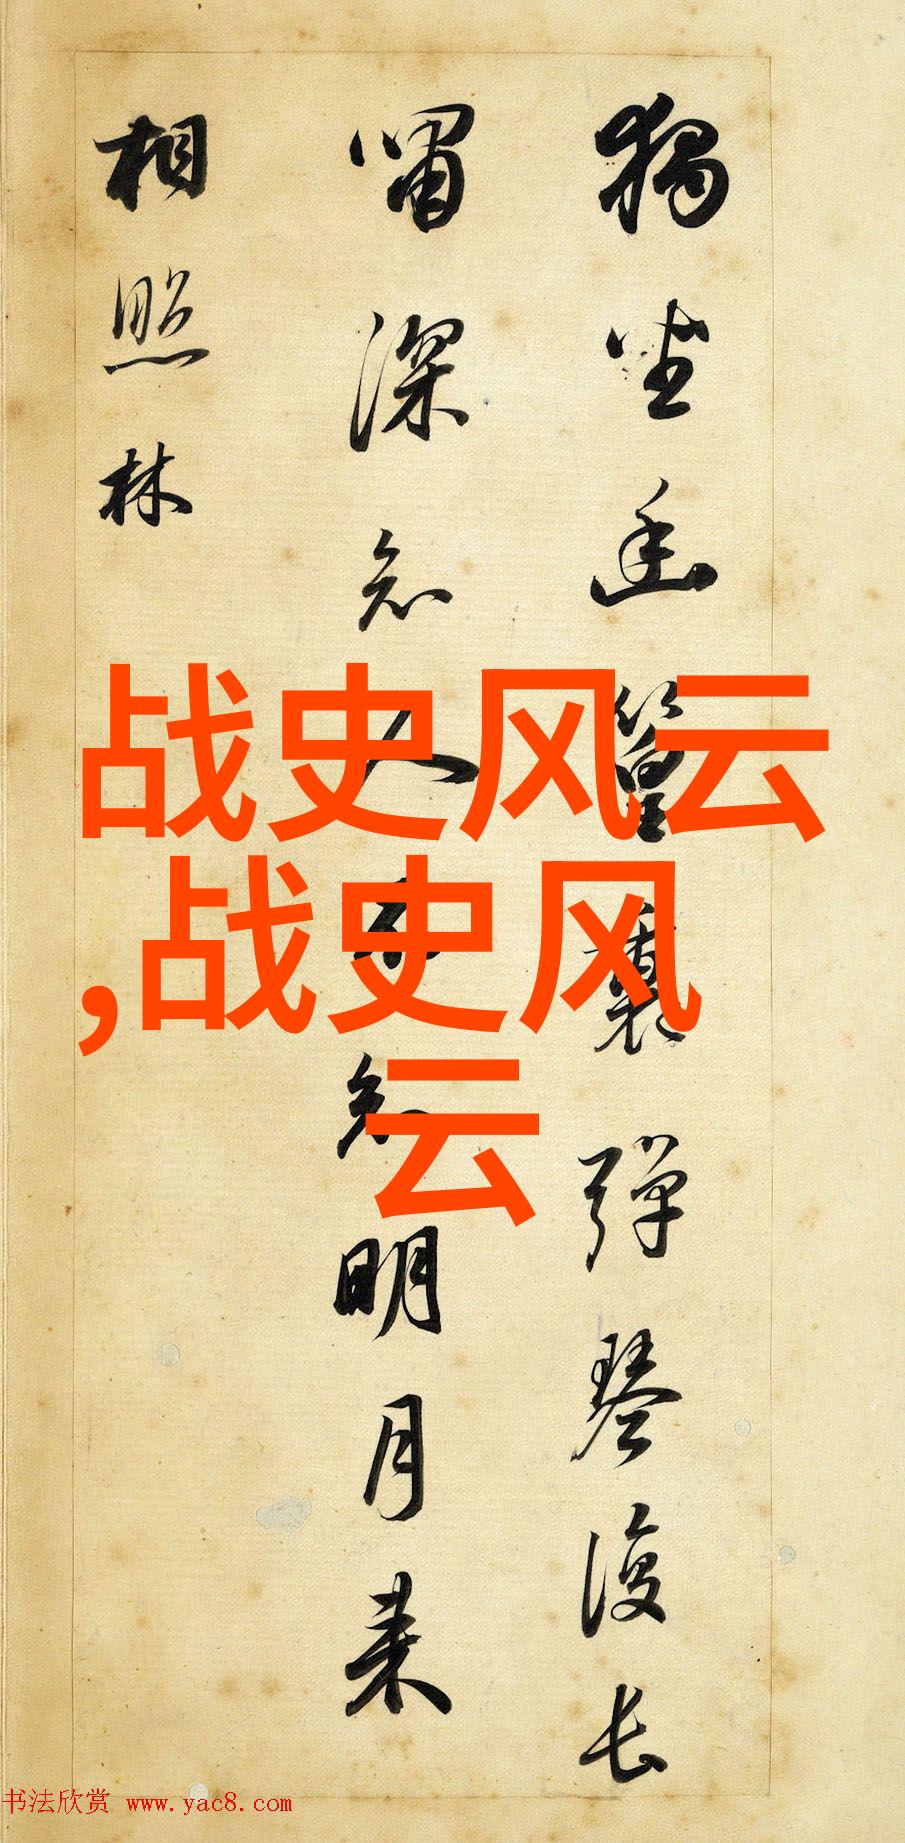 獨坐幽篁裏彈琴復長
嘯深知人不知明月来
相照林
战史风云
,战史风
云
书法欣赏 www.yac8.com